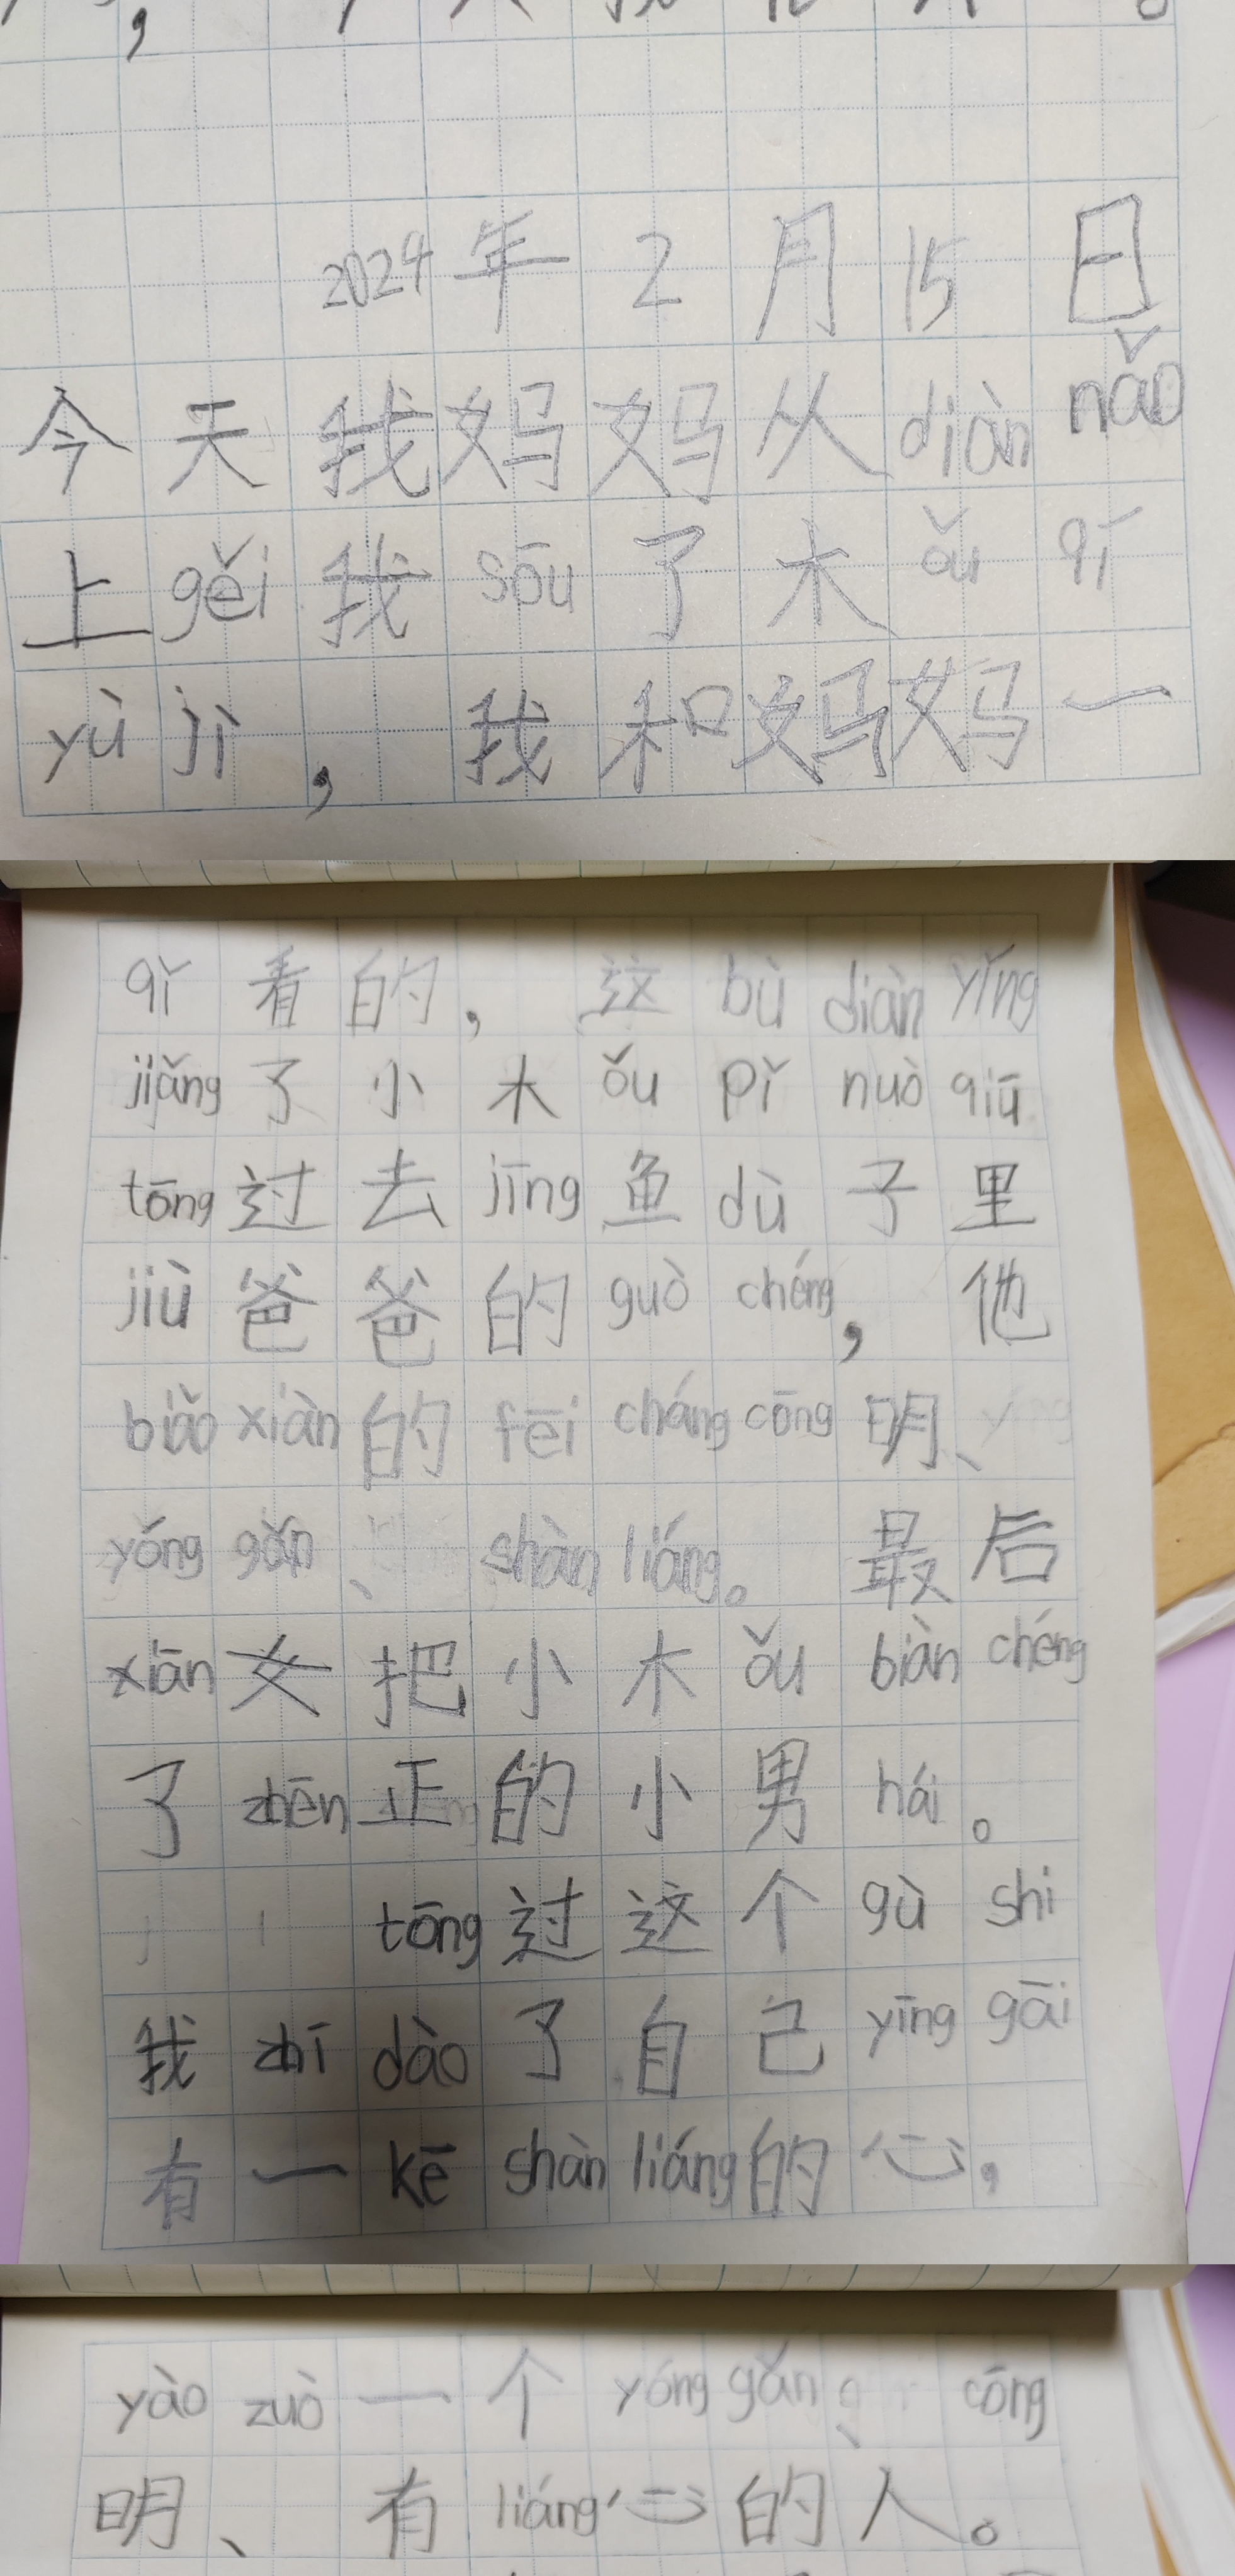 2024年2月15日
今天我妈妈从diàn nǎo
上gěi我sōu了木ǒu qí
yù jì，我和妈妈一
qǐ看的，这bù diàn yǐng
jiǎng了小木ǒu pǐ nuò qiū
tōng过去jīng鱼dù子里
jiù爸爸的guò chéng，他
biǎo xiàn的fēi cháng cōng明、
yǒng gǎn、shàn liáng。最后
xiān女把小木ǒu biàn chéng
了zhēn正的小男hái。
tōng过这个gù shi
我zhī dào了自己yīng gāi
有一kē shàn liáng的心，
yào zuò一个yóng gǎn、cōng
明、有liáng心的人。